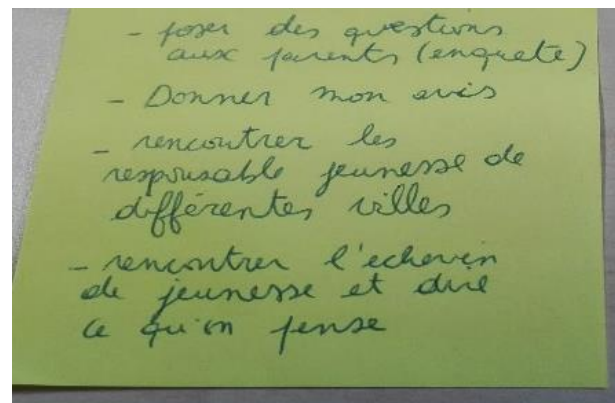 - poser des questions
aux parents (enquete)
- Donner mon avis
- rencontrer les
responsable jeunesse de
différentes villes
- rencontrer l'echevin
de jeunesse et dire
ce qu'on pense